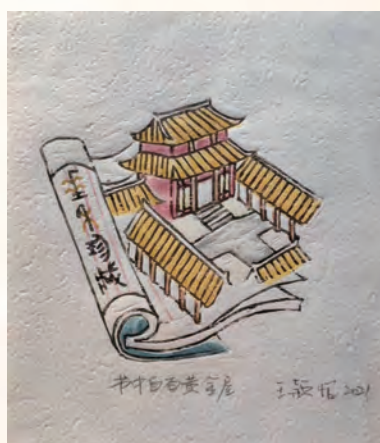 珍藏
书中自有黄金屋
王颖 2021